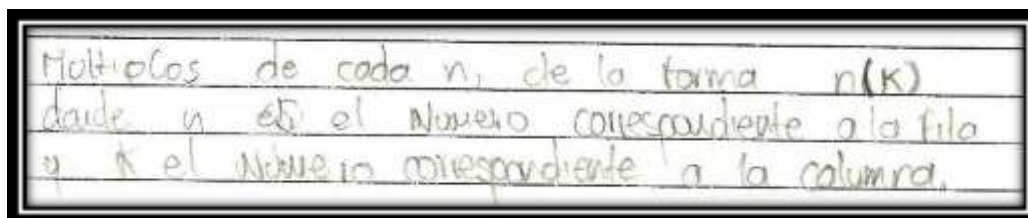 Multiplos de cada n, de la forma n(K)
donde n es el Número correspondiente a la fila
y K el Número correspondiente a la columna.